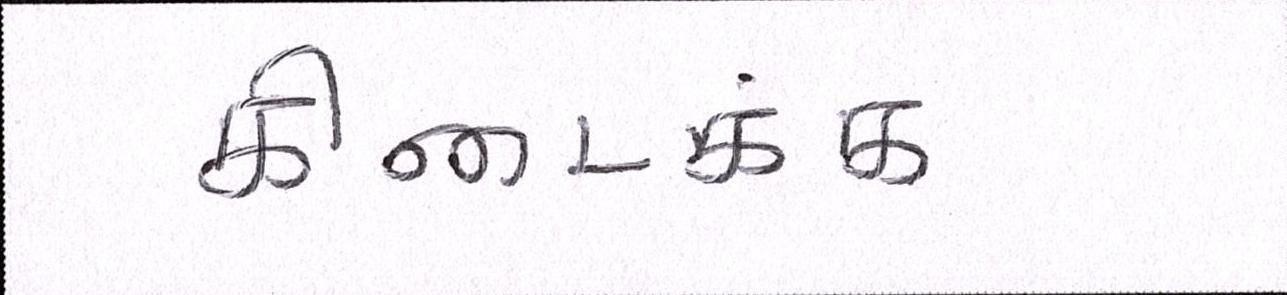 கிடைக்க